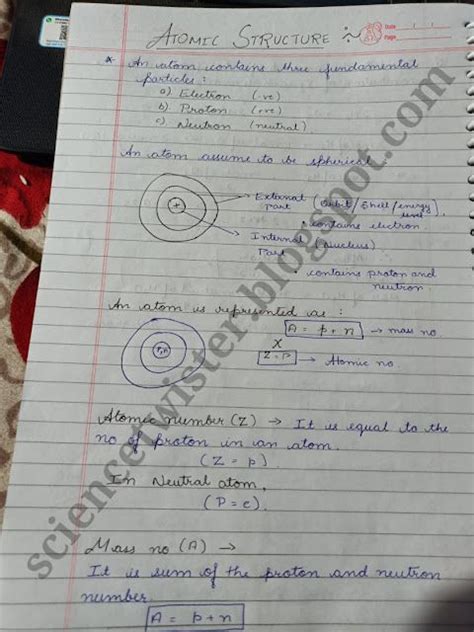 ATOMIC STRUCTURE
Date
Page
* An atom contains three fundamental
particles :
a) Electron (-ve)
b) Proton (+ve)
c) Neutron (neutral)
An atom assume to be spherical
External part (Orbit / Shell / energy level)
• contains electron
+
Internal Part (Nucleus)
• contains proton and
neutron
An atom is represented as :
A = p + n → mass no.
X
Z = P → Atomic no.
P,n
Atomic number (Z) → It is equal to the
no of proton in an atom.
(Z = p)
In Neutral atom,
(P = e).
Mass no (A) →
It is sum of the proton and neutron
number.
A = p + n
sciencetwister.blogspot.com